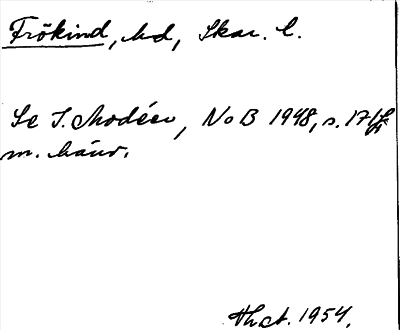 Frökind, hd, Skar. l.
Se I. Modéer, NoB 1948, s. 17 ff.
m. hänv.
1954.